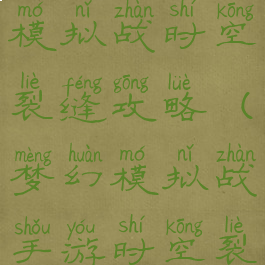 mó nǐ zhàn shí kōng
模拟战时空
liè féng gōng lüè
裂缝攻略（
mèng huàn mó nǐ zhàn
梦幻模拟战
shǒu yóu shí kōng liè
手游时空裂